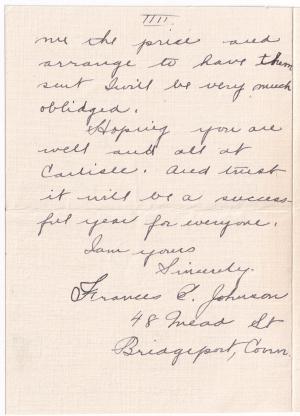 IIII.
me the price and
arrange to have them
sent I will be very much
oblidged.
Hoping you are
well and all at
Carlisle. And trust
it will be a success-
ful year for everyone.
I am yours
Sincerely.
Frances E. Johnson
48 Mead St
Bridgeport, Conn.